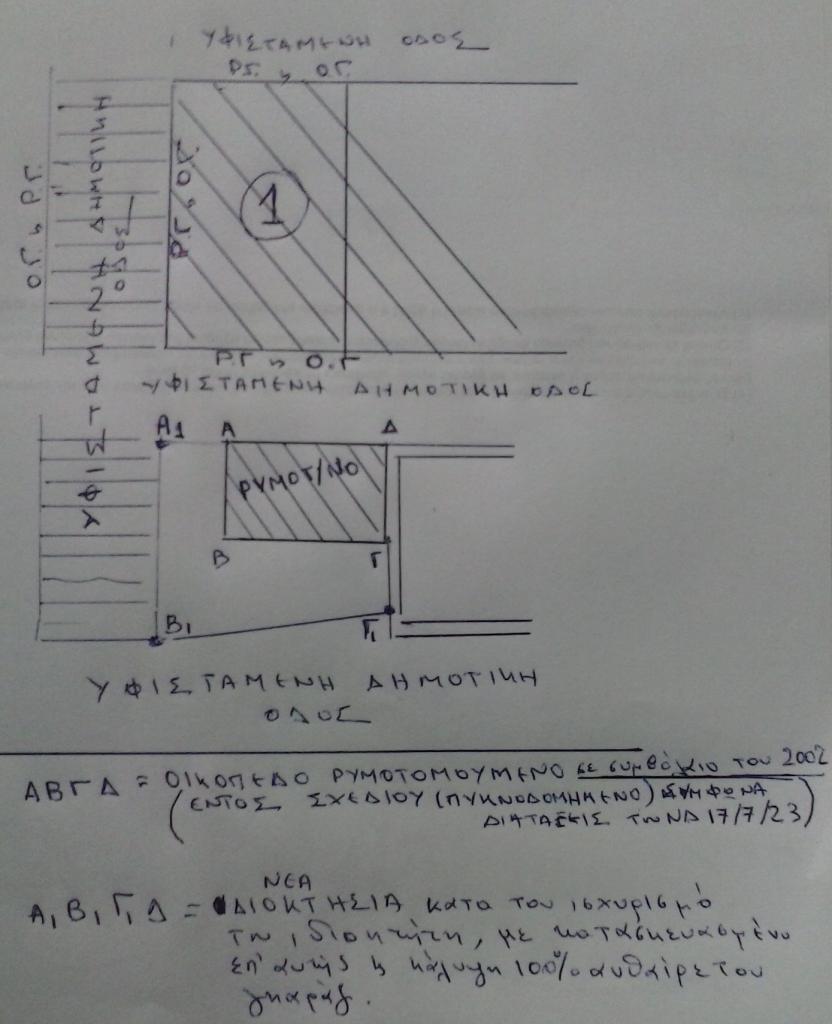 ΥΦΙΣΤΑΜΕΝΗ ΟΔΟΣ
Ρ.Γ. ή Ο.Γ.
Ο.Γ. ή Ρ.Γ.
ΥΦΙΣΤΑΜΕΝΗ ΔΗΜΟΤΙΚΗ
ΟΔΟΣ
Ρ.Γ. ή Ο.Γ.
1
Ρ.Γ ή Ο.Γ
ΥΦΙΣΤΑΜΕΝΗ ΔΗΜΟΤΙΚΗ ΟΔΟΣ
Α1 Α Δ
ΡΥΜΟΤ/ΝΟ
Β Γ
Β1 Γ1
ΥΦΙΣΤΑΜΕΝΗ ΔΗΜΟΤΙΚΗ
ΟΔΟΣ
ΑΒΓΔ = ΟΙΚΟΠΕΔΟ ΡΥΜΟΤΟΜΟΥΜΕΝΟ σε συμβόλαιο του 2002
(ΕΝΤΟΣ ΣΧΕΔΙΟΥ (ΠΥΚΝΟΔΟΜΗΜΕΝΟ) ΣΥΜΦΩΝΑ
ΔΙΑΤΑΞΕΙΣ των ΝΔ 17/7/23)
ΝΕΑ
Α1 Β1 Γ1 Δ = ΙΔΙΟΚΤΗΣΙΑ κατα τον ισχυρισμό
του ιδιοκτήτη, με κατασκευασμένο
επ' αυτής η κάλυψη 100% αυθαίρετου
γκαράζ.